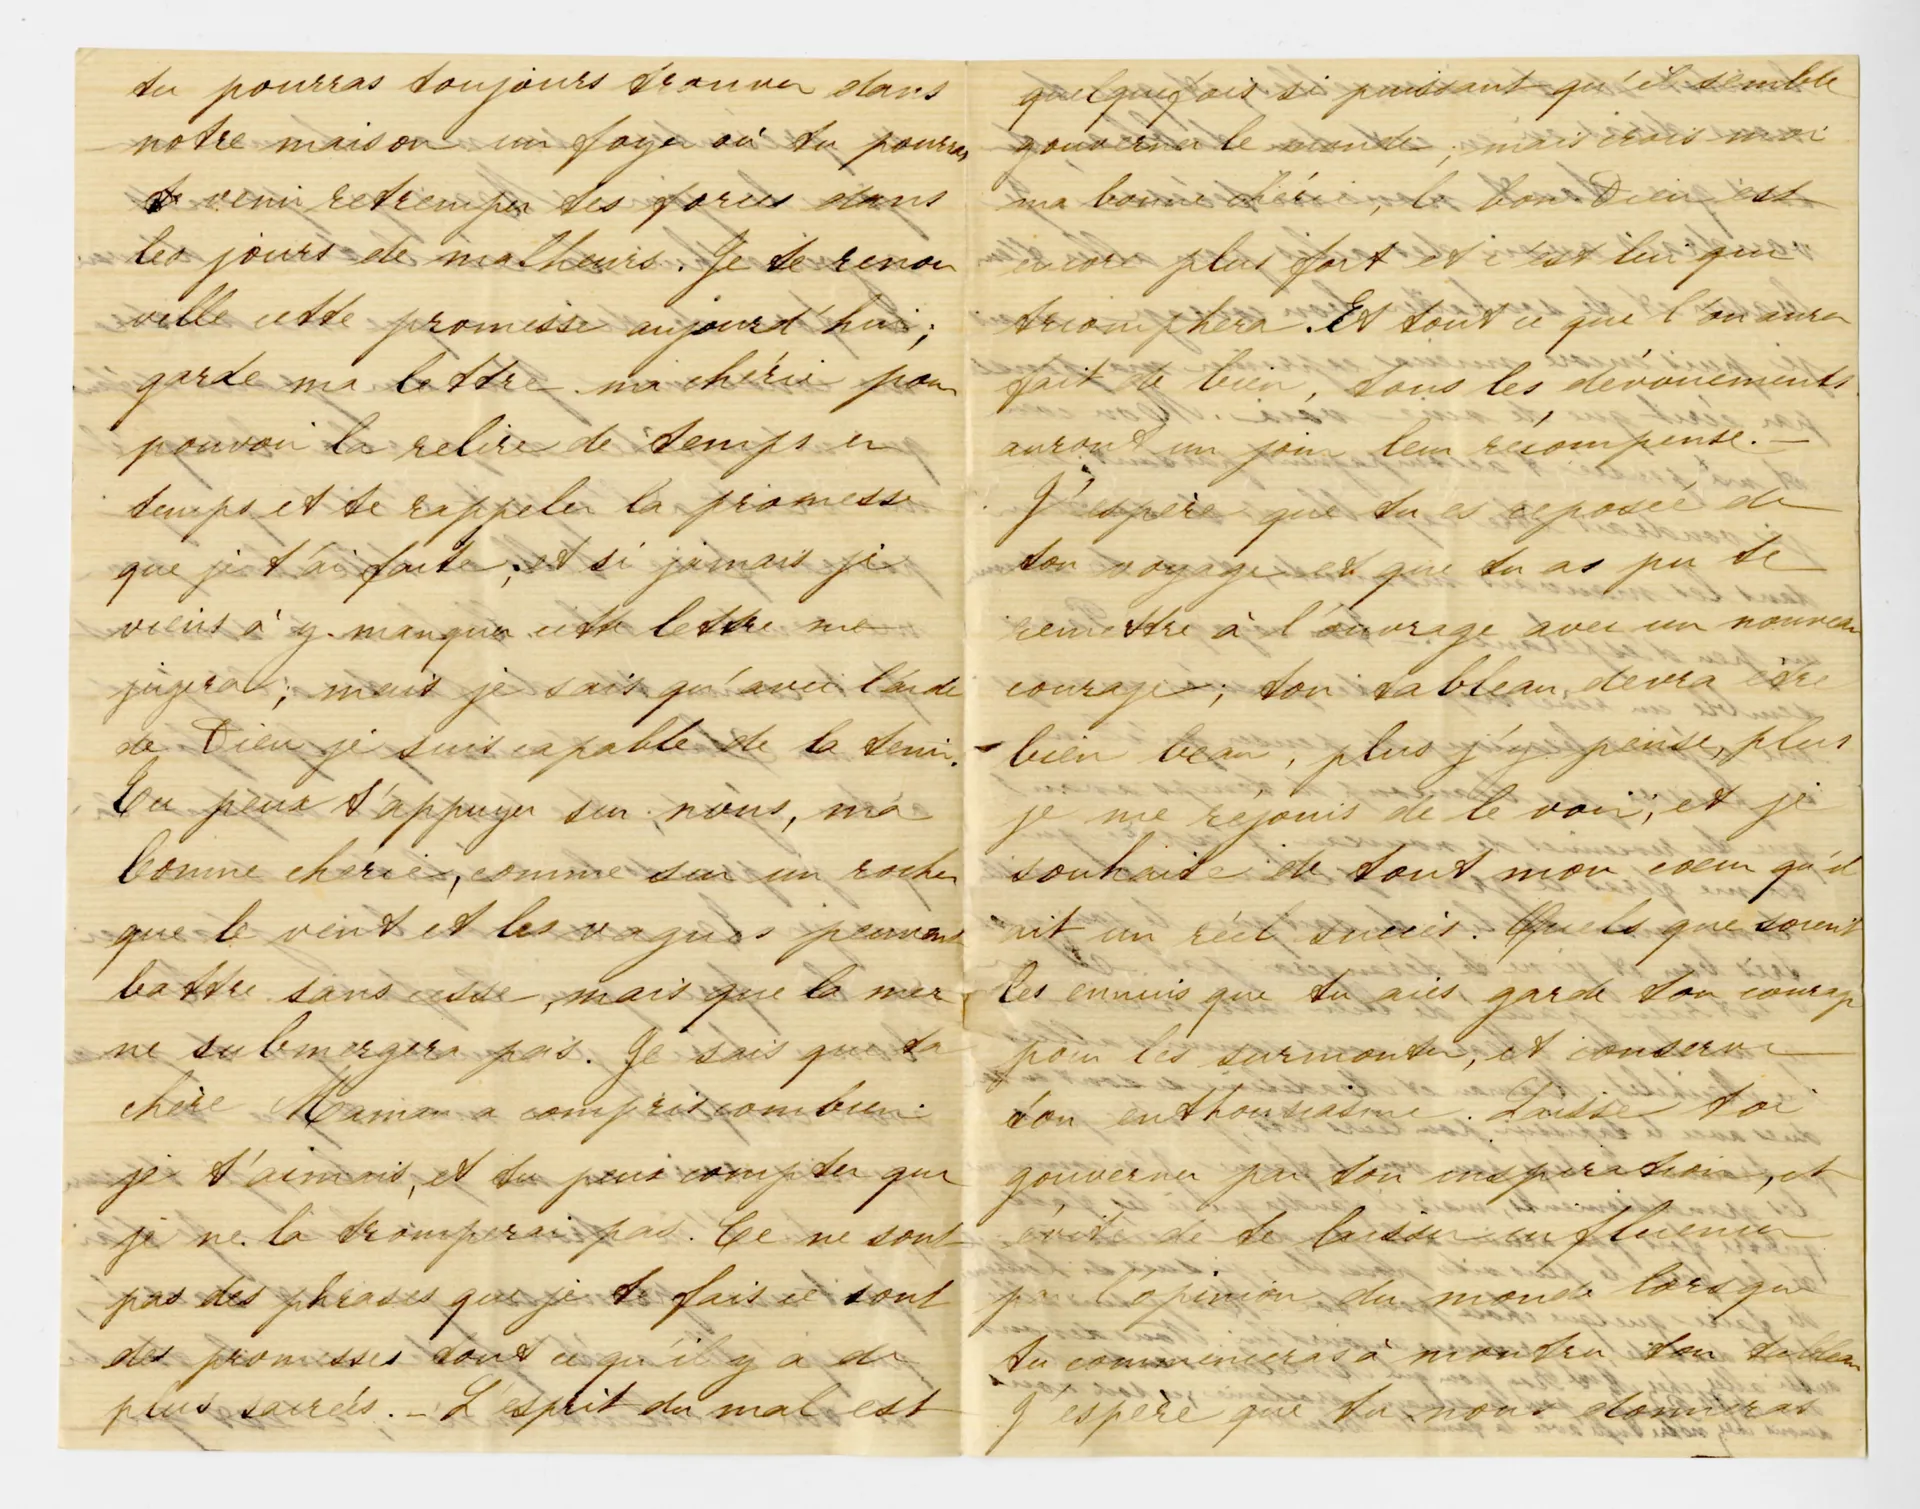 tu pourras toujours trouver dans
notre maison un foyer où tu pourras
te venir retremper tes forces dans
les jours de malheurs. Je te renou
velle cette promesse aujourd'hui;
garde ma lettre ma chérie pour
pouvoir la relire de temps en
temps et te rappeler la promesse
que je t'ai faite; et si jamais je
viens à y manquer cette lettre me
jugera; mais je sais qu'avec l'aide
de Dieu je suis capable de la tenir.
Tu peux t'appuyer sur nous, ma
bonne cherie, comme sur un rocher
que le vent et les vagues peuvent
battre sans cesse, mais que la mer
ne submergera pas. Je sais que ta
chère Maman a compris combien
je t'aimais, et tu peux compter que
je ne la tromperai pas. Ce ne sont
pas des phrases que je te fais ce sont
des promesses tout ce qu'il y a de
plus sacrés. — L'esprit du mal est
quelquefois si puissant qu'il semble
gouverner le monde; mais crois moi
ma bonne chérie, le bon Dieu est
encore plus fort et c'est lui qui
triomphera. Et tout ce que l'on aura
fait de bien, tous les dévouements
auront un jour leur récompense. —
J'espère que tu es reposée de
ton voyage et que tu as pu te
remettre à l'ouvrage avec un nouveau
courage; ton tableau devra être
bien beau, plus j'y pense, plus
je me réjouis de le voir; et je
souhaite de tout mon coeur qu'il
ait un réel succès. Quels que soient
les ennuis que tu aies garde ton courage
pour les surmonter, et conserve
ton enthousiasme. Laisse toi
gouverner par ton inspiration, et
évite de te laisser influencer
par l'opinion du monde lorsque
tu commenceras à montrer ton tableau
J'espère que tu nous donneras